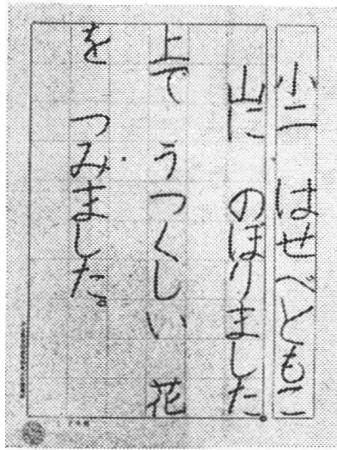 小二 はせべともこ
山に のぼりました。
上で うつくしい 花
を つみました。